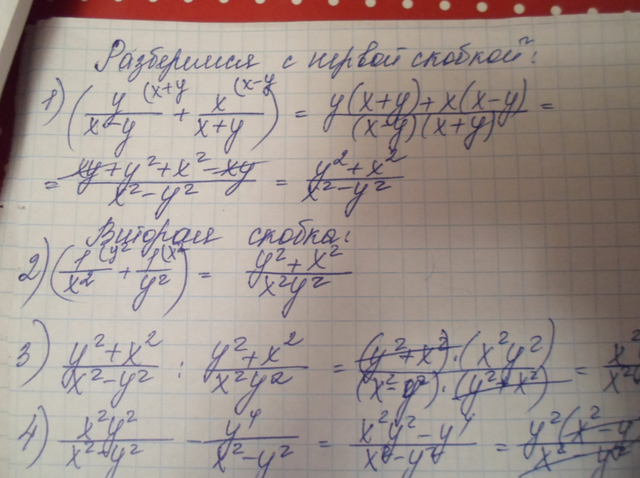 Разберимся с первой скобкой:
1) (y/(x-y) (x+y + x/(x+y) (x-y) = (y(x+y)+x(x-y))/((x-y)(x+y)) =
= (xy+y²+x²-xy)/(x²-y²) = (y²+x²)/(x²-y²)
Вторая скобка:
2) (1/x² (y² + 1/y² (x²) = (y²+x²)/(x²y²)
3) (y²+x²)/(x²-y²) : (y²+x²)/(x²y²) = ((y²+x²)·(x²y²))/((x²-y²)·(y²+x²)) = x²/x²
4) (x²y²)/(x²-y²) - y⁴/(x²-y²) = (x²y²-y⁴)/(x²-y²) = y²(x²-y/x²-y²